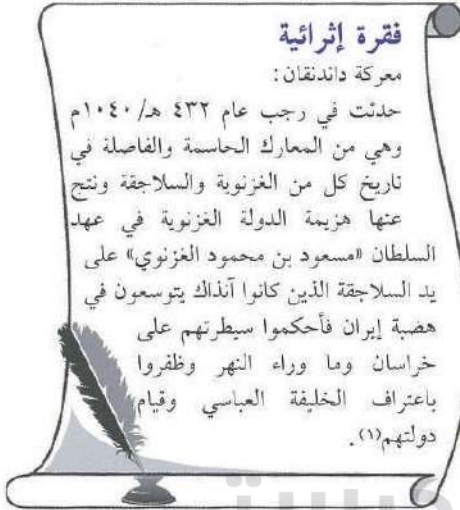 فقرة إثرائية
معركة داندنقان:
حدثت في رجب عام ٤٣٢ هـ/١٠٤٠م
وهي من المعارك الحاسمة والفاصلة في
تاريخ كل من الغزنوية والسلاجقة ونتج
عنها هزيمة الدولة الغزنوية في عهد
السلطان «مسعود بن محمود الغزنوي» على
يد السلاجقة الذين كانوا آنذاك يتوسعون في
هضبة إيران فأحكموا سيطرتهم على
خراسان وما وراء النهر وظفروا
باعتراف الخليفة العباسي وقيام
دولتهم(١).